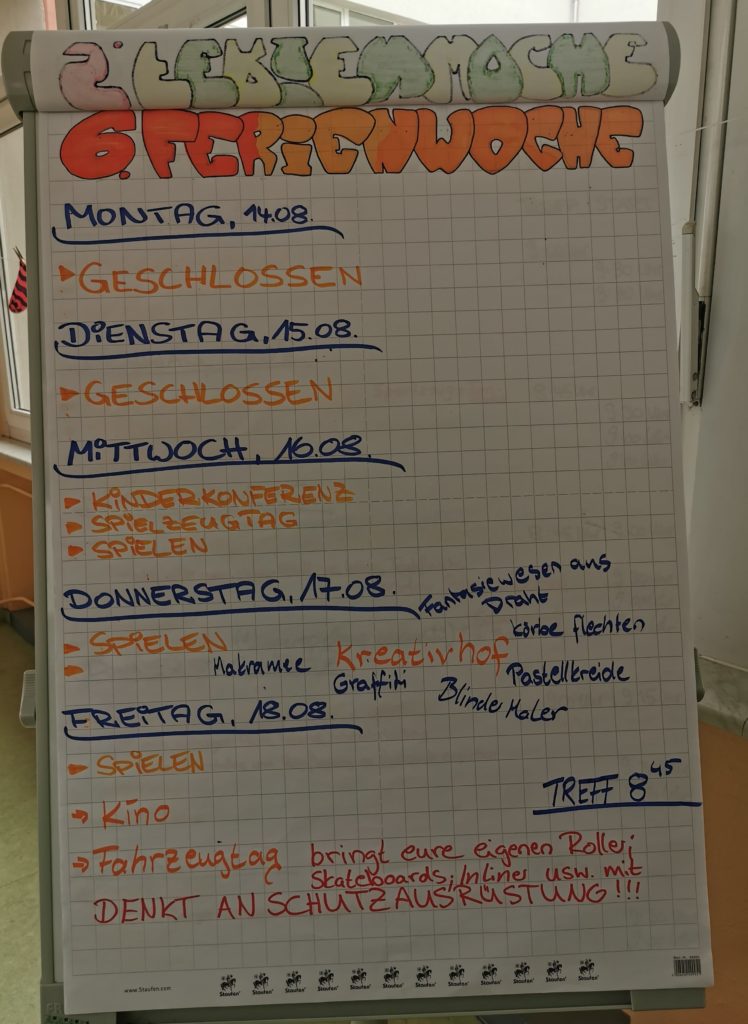 2. FERIENWOCHE
6. FERIENWOCHE
MONTAG, 14.08.
GESCHLOSSEN
DIENSTAG, 15.08.
GESCHLOSSEN
MITTWOCH, 16.08.
KINDERKONFERENZ
SPIELZEUGTAG
SPIELEN
DONNERSTAG, 17.08.
SPIELEN
Fantasiewesen aus
Draht
Körbe flechten
Makramee
Kreativhof
Graffiti
Pastellkreide
Blinde Maler
FREITAG, 18.08.
SPIELEN
TREFF 8 45
Kino
Fahrzeugtag bringt eure eigenen Roller;
Skateboards; Inliner usw. mit
DENKT AN SCHUTZAUSRÜSTUNG!!!
www.Staufen.com
Staufen Staufen Staufen Staufen Staufen Staufen Staufen Staufen Staufen Staufen Staufen Staufen